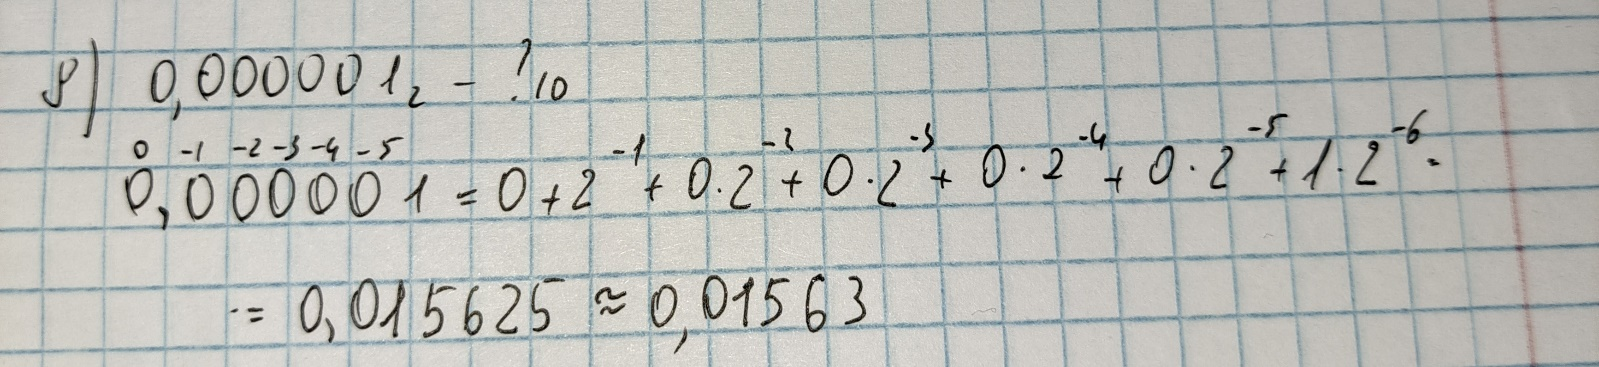 8) 0,000001₂ – ?₁₀
0 -1 -2 -3 -4 -5
0,000001 = 0 + 2⁻¹ + 0·2⁻² + 0·2⁻³ + 0·2⁻⁴ + 0·2⁻⁵ + 1·2⁻⁶ =
= 0,015625 ≈ 0,01563